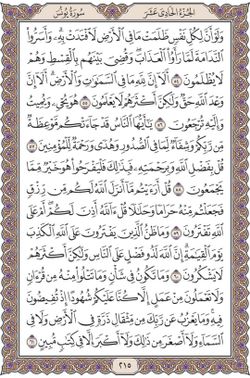 الجزء الحادي عشر سورة يونس
ولو أن لكل نفس ظلمت ما في الأرض لافتدت به وأسروا
الندامة لما رأوا العذاب وقضي بينهم بالقسط وهم
لا يظلمون ٥٤ ألا إن لله ما في السموات والأرض ألا إن
وعد الله حق ولكن أكثرهم لا يعلمون ٥٥ هو يحي ويميت
وإليه ترجعون ٥٦ يأيها الناس قد جاءتكم موعظة
من ربكم وشفاء لما في الصدور وهدى ورحمة للمؤمنين ٥٧
قل بفضل الله وبرحمته فبذلك فليفرحوا هو خير مما
يجمعون ٥٨ قل أرءيتم ما أنزل الله لكم من رزق
فجعلتم منه حراما وحلالا قل ءالله أذن لكم أم على الله
تفترون ٥٩ وما ظن الذين يفترون على الله الكذب
يوم القيمة إن الله لذو فضل على الناس ولكن أكثرهم
لا يشكرون ٦٠ وما تكون في شأن وما تتلوا منه من قرءان
ولا تعملون من عمل إلا كنا عليكم شهودا إذ تفيضون
فيه وما يعزب عن ربك من مثقال ذرة في الأرض ولا في
السماء ولا أصغر من ذلك ولا أكبر إلا في كتب مبين ٦١
٢١٥